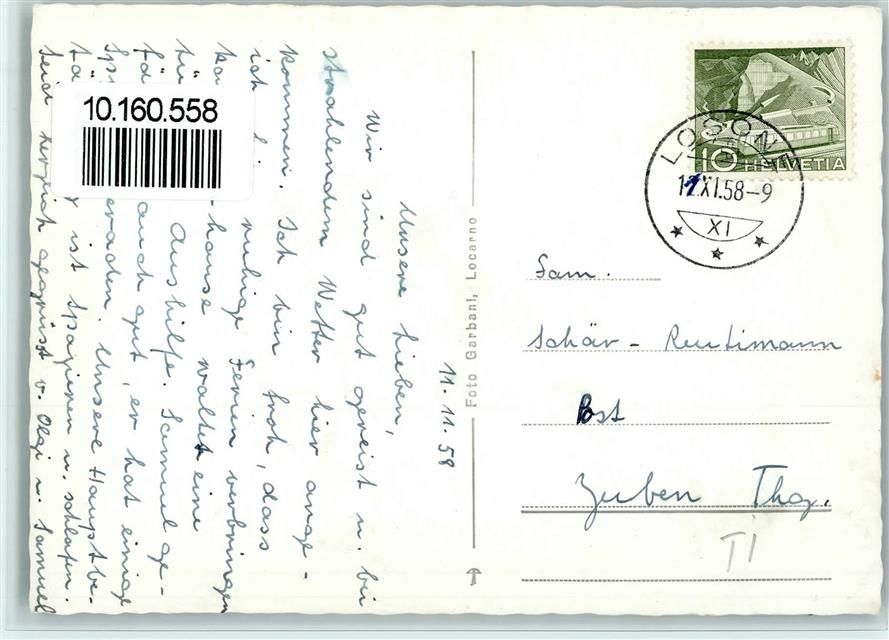 11. 11. 58
Unsere Lieben,
Wir sind gut gereist u. bei
strahlendem Wetter hier ange-
kommen. Ich bin froh, dass
ich ruhige Ferien verbringen
-hause waltet eine
Aushilfe. Samuel ge-
auch gut, er hat einige
Unsere Hauptbe-
ist spazieren u. schlafen.
Seid herzlich gegrüsst v. Olgi u. Samuel
10.160.558
Foto Garbani, Locarno
10 HELVETIA
LOSONE
XI.58-9
XI
Fam.
Schär - Reutimann
Post
Zuben Thg.
TI